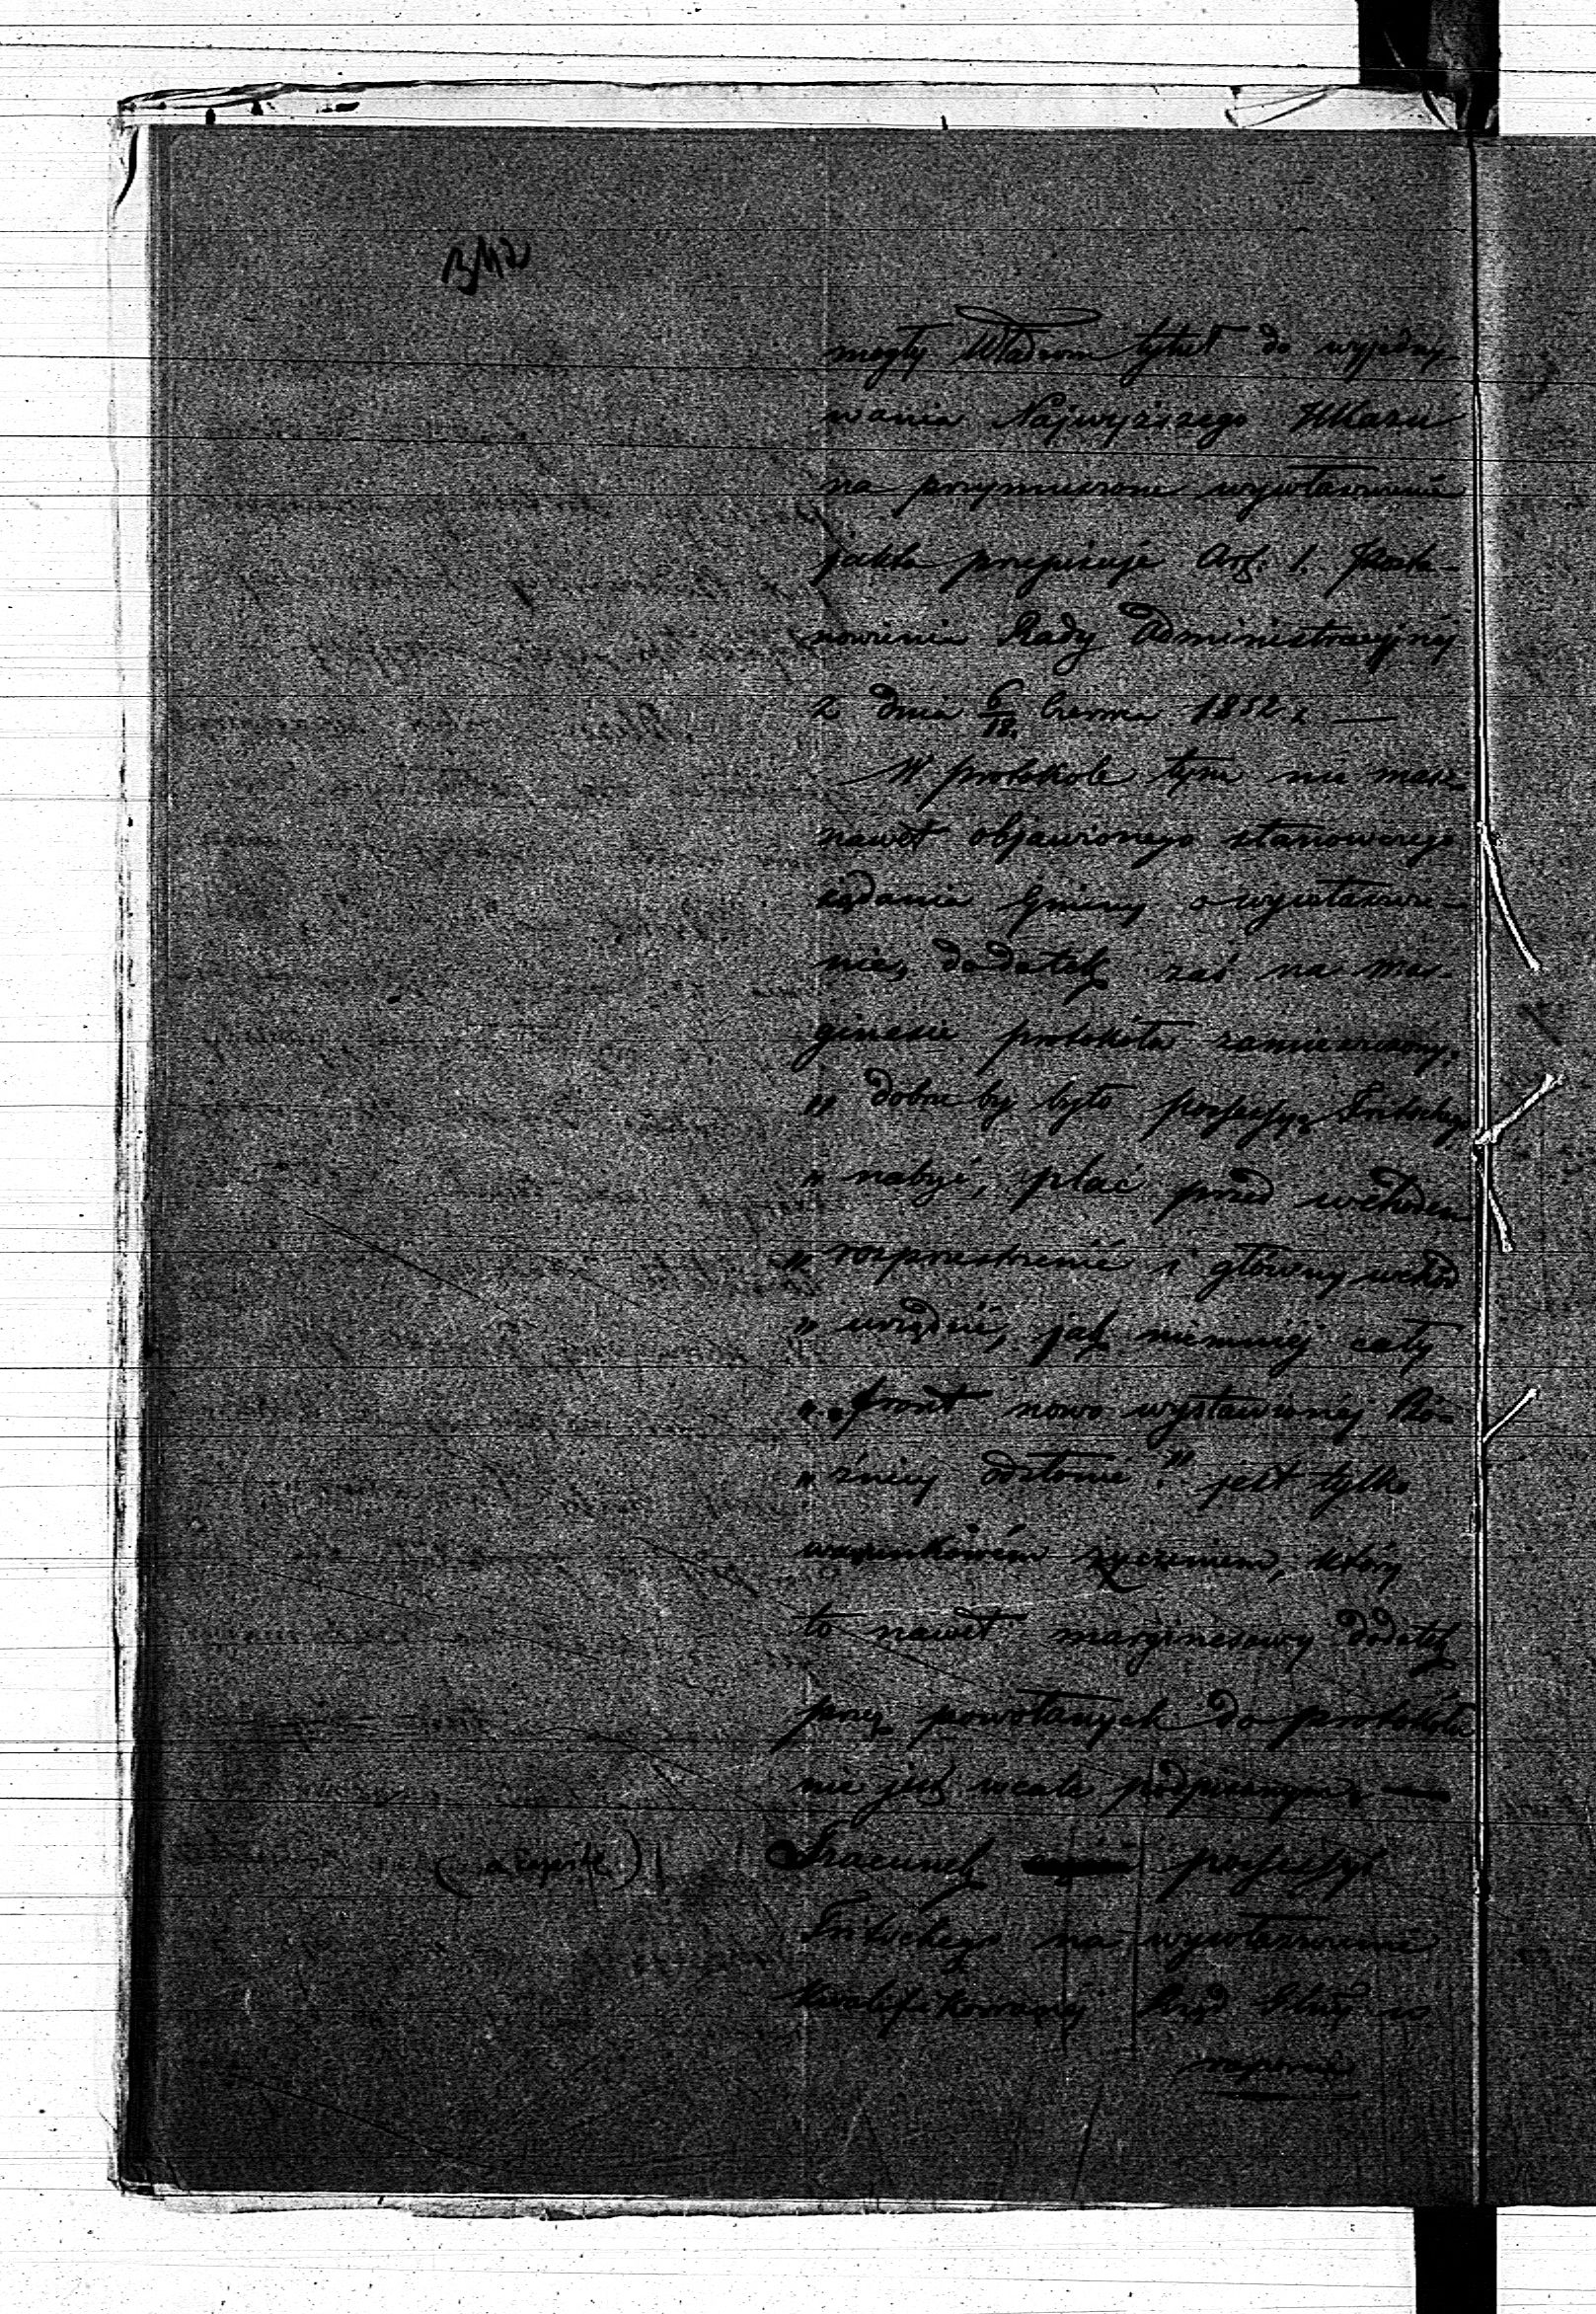 mogły Władzom tytuł do wyjedny-
wania Najwyższego Ukazu
na przymusowe wywłaszczenie
jak to przepisuje Art: 1. Posta-
nowienia Rady Administracyjnéj
z dnia 6/18. Czerwca 1852 r. —
W protokole tym nie masz
nawet objawionego stanowczego
żądania Gminy o wywłaszcze-
nie, dodatek zaś na mar-
ginesie protokółu zamieszczony,
„ dobrze by było possessyę Fritschego
„ nabyć, plac przed wchodem
„ rozprzestrzenić i główny wchód
„ urządzić, jak niemniéj cały
„ front nowo wystawionéj Bó-
„ żnicy odsłonić." jest tylko
warunkowém życzeniem, który
to nawet marginesowy dodatek
przez powołanych do protokółu
nie jest wcale podpisanym. —
Szacunek possessyi
Fritschego na wywłaszczenie
kwalifikowanéj Rząd Gub: w
raporcie